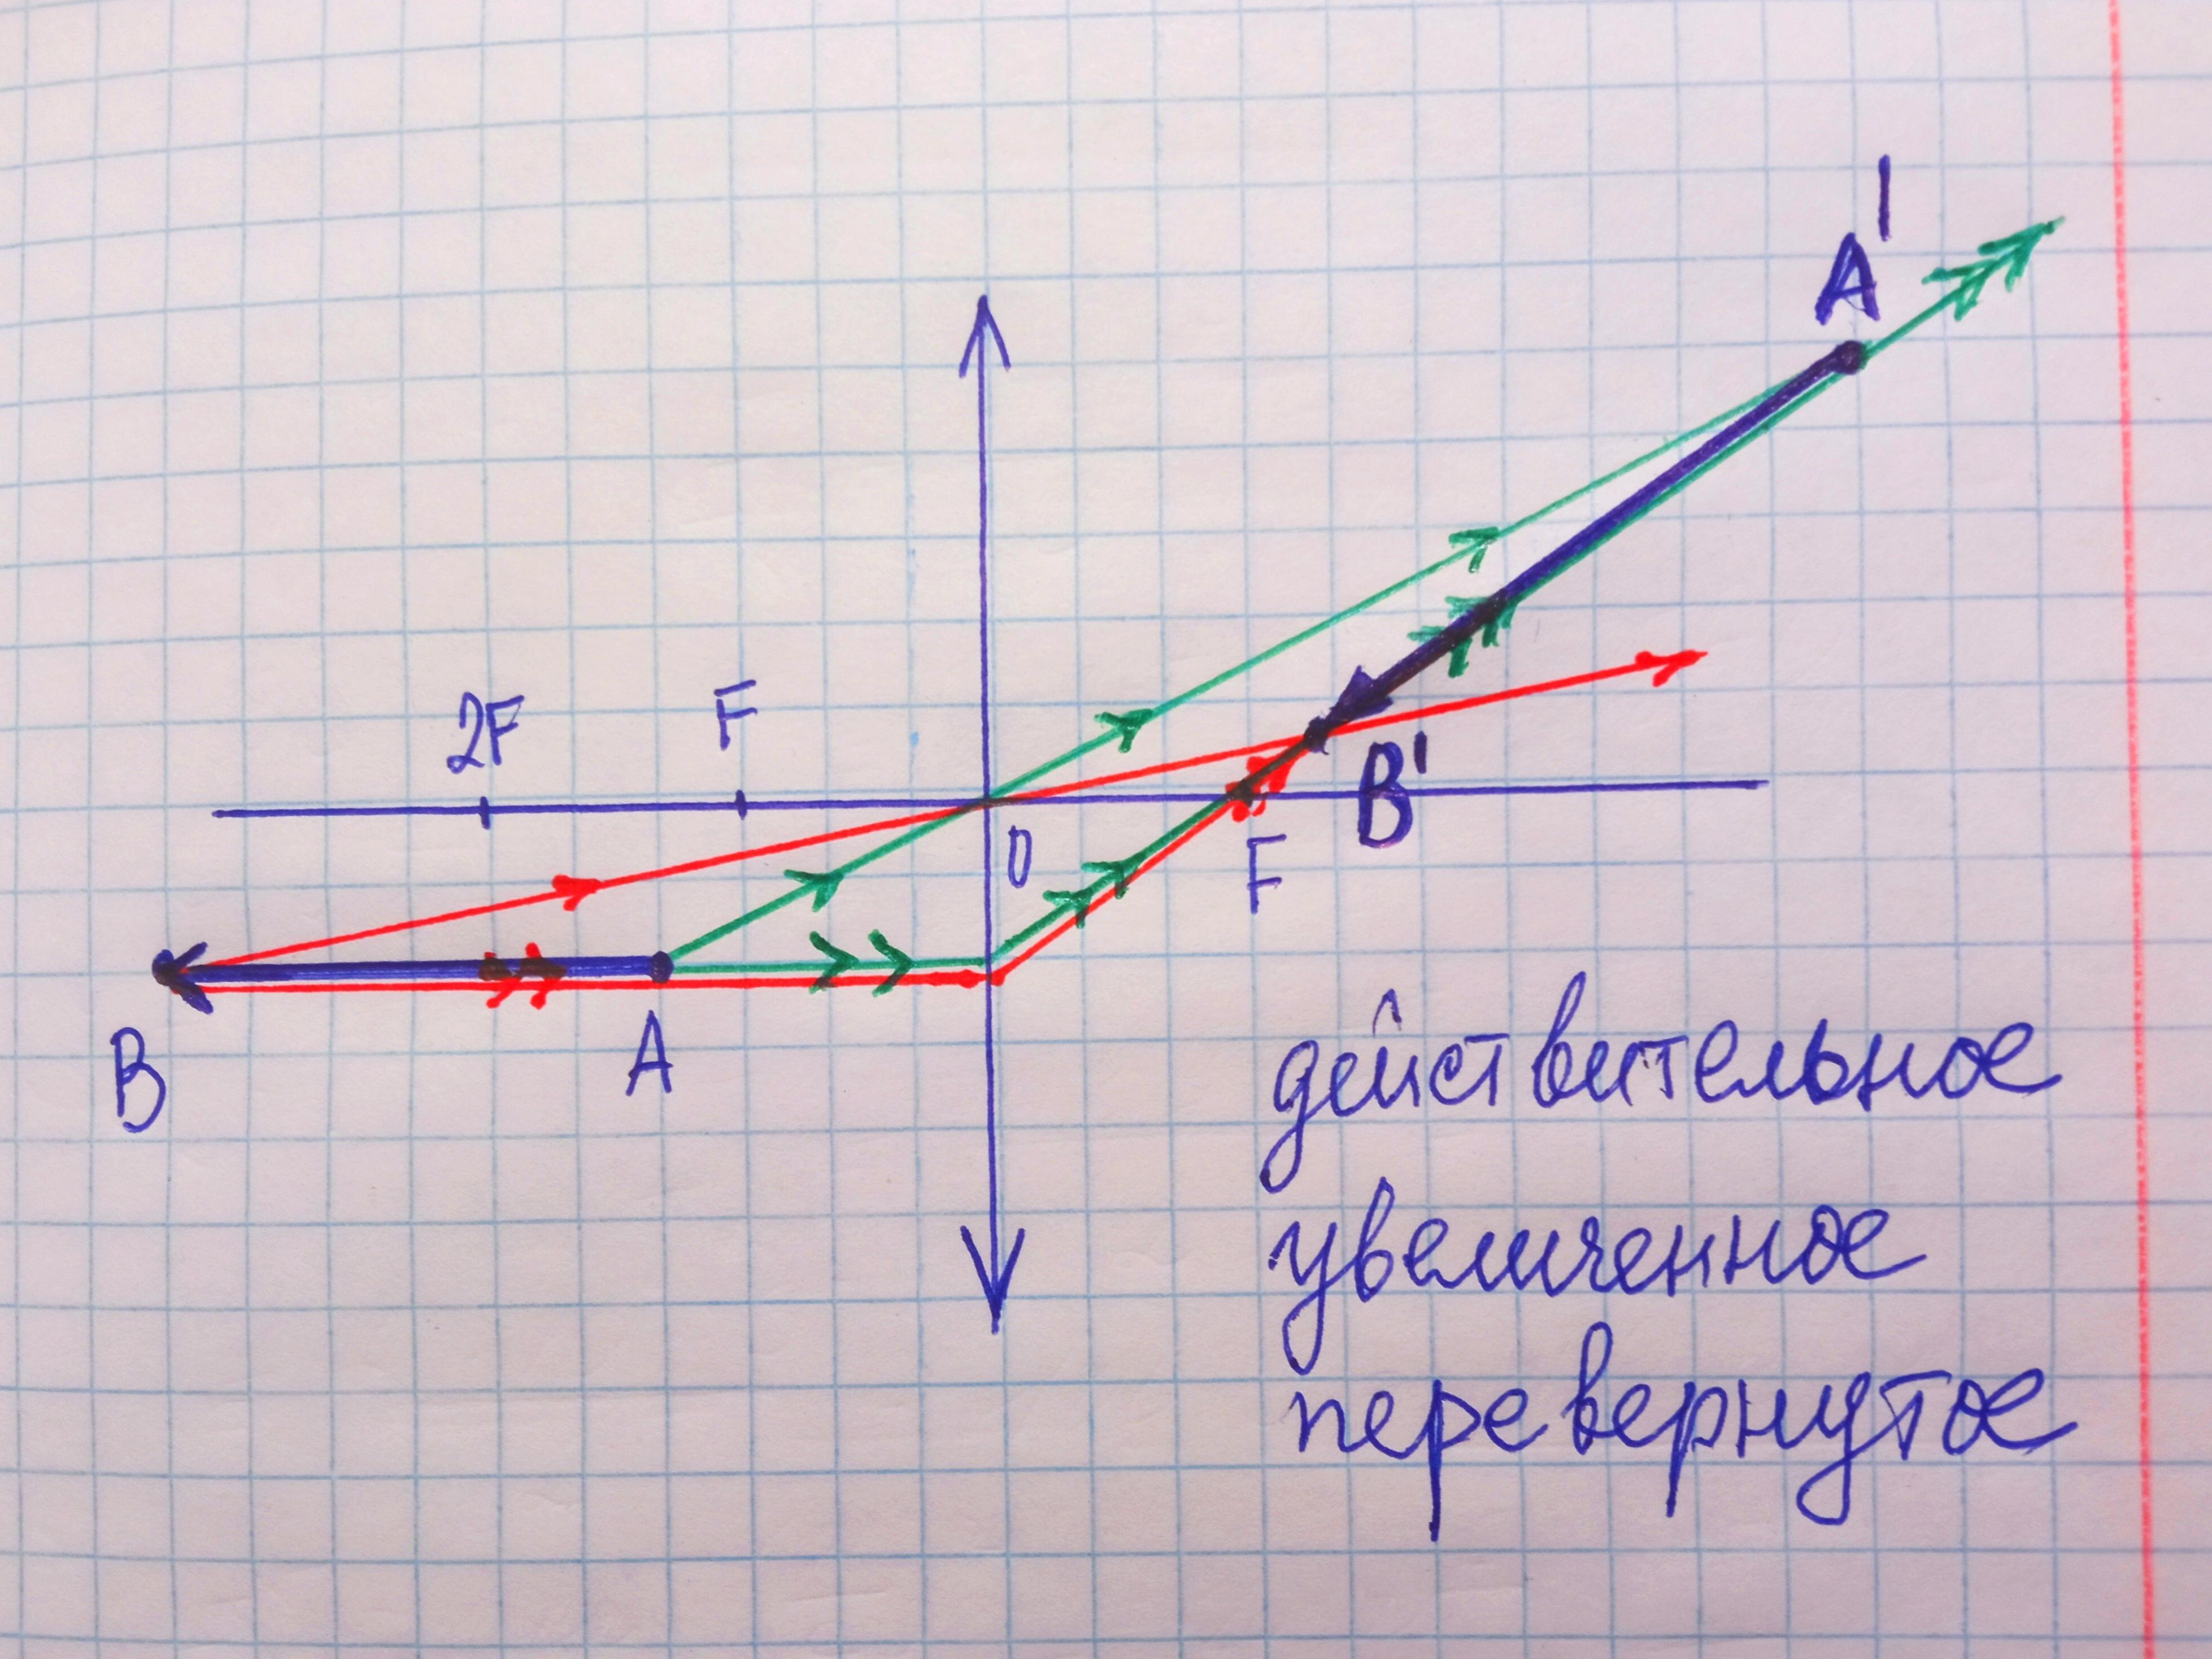 A'
2F F
B'
O
F
B A
действительное
увеличенное
перевернутое